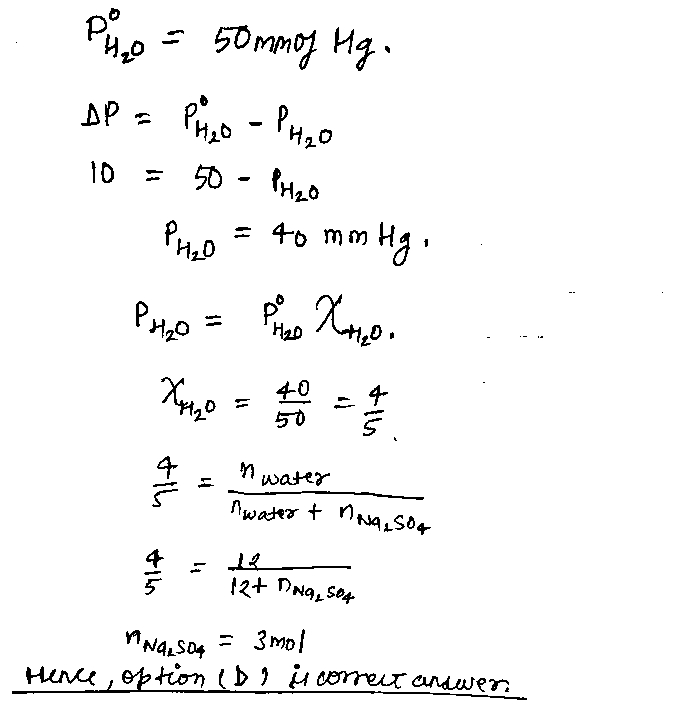 P°H₂O = 50 mmof Hg.
ΔP = P°H₂O - PH₂O
10 = 50 - PH₂O
PH₂O = 40 mm Hg.
PH₂O = P°H₂O χH₂O.
χH₂O = 40/50 = 4/5
4/5 = n water / n water + n Na₂SO₄
4/5 = 12 / 12 + n Na₂SO₄
n Na₂SO₄ = 3 mol
Hence, option (D) is correct answer.